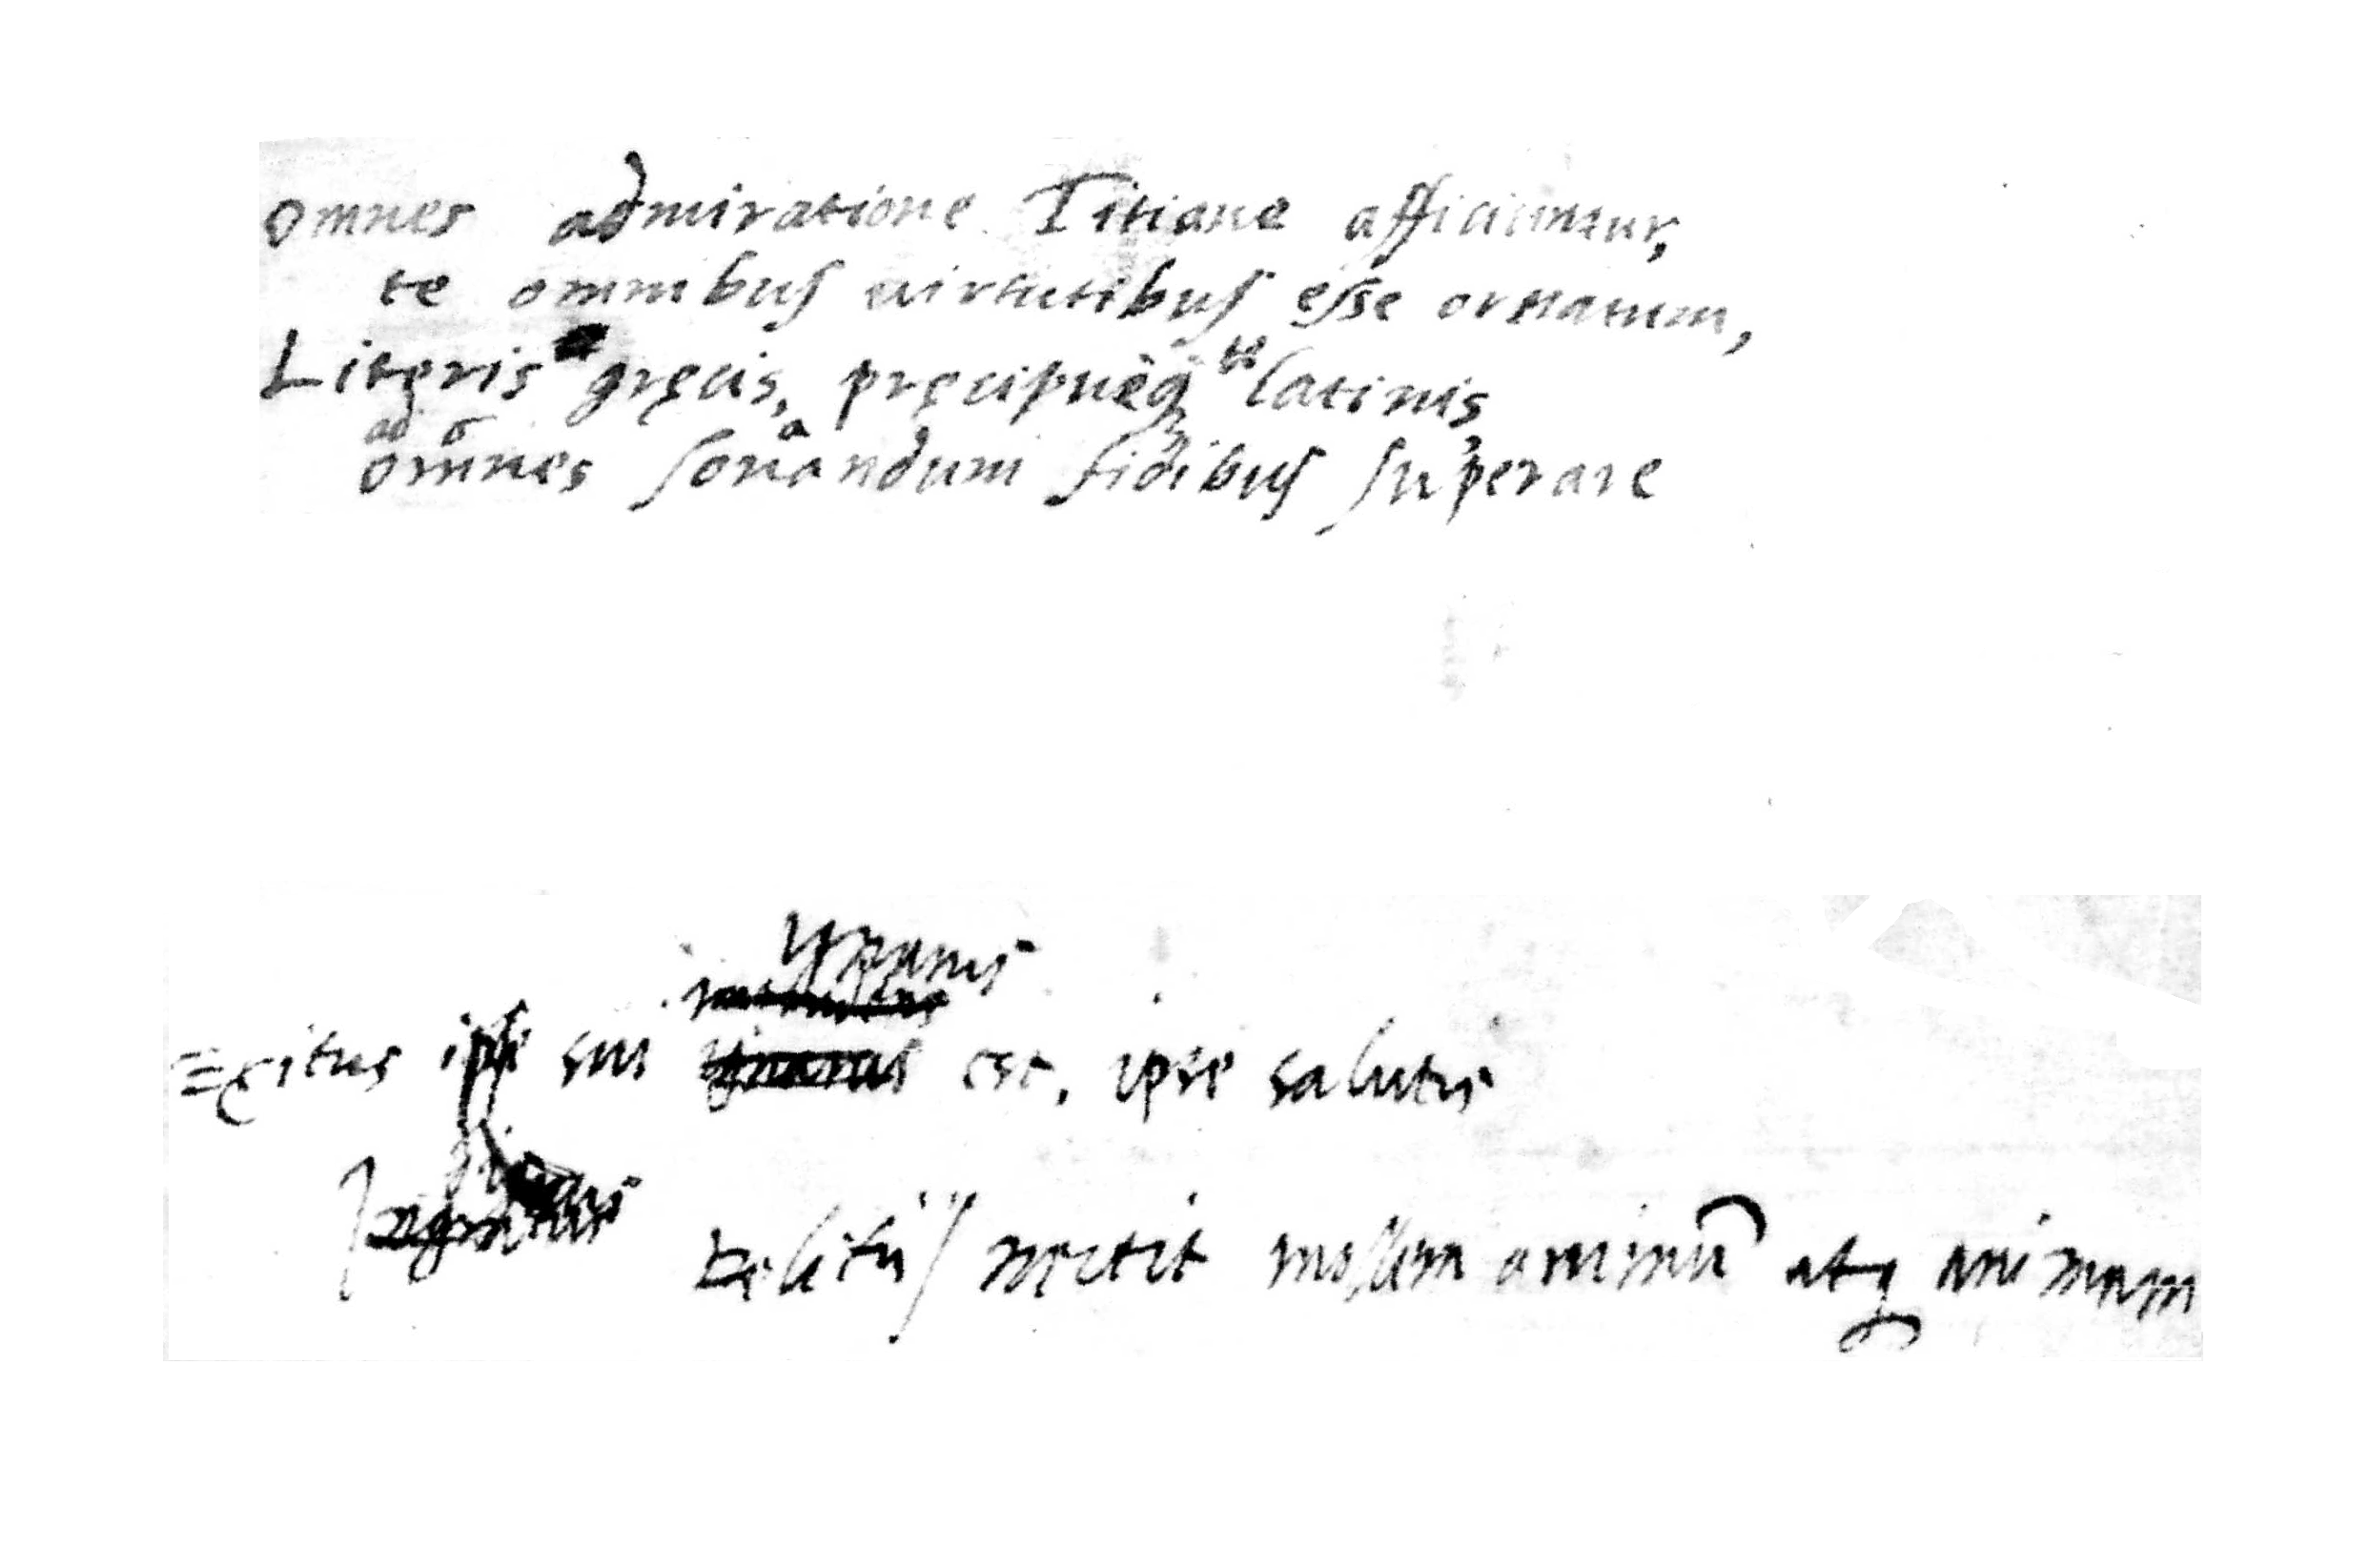 omnes admiratione Titiane afficiuntur,
te omnibus virtutibus esse ornatum,
Literis gręcis, pręcipuèq te latinis,
ad o
omnes sonandum fidibus superare
Exitus ipse sui est, ipse salutis
nectit animū atq animam